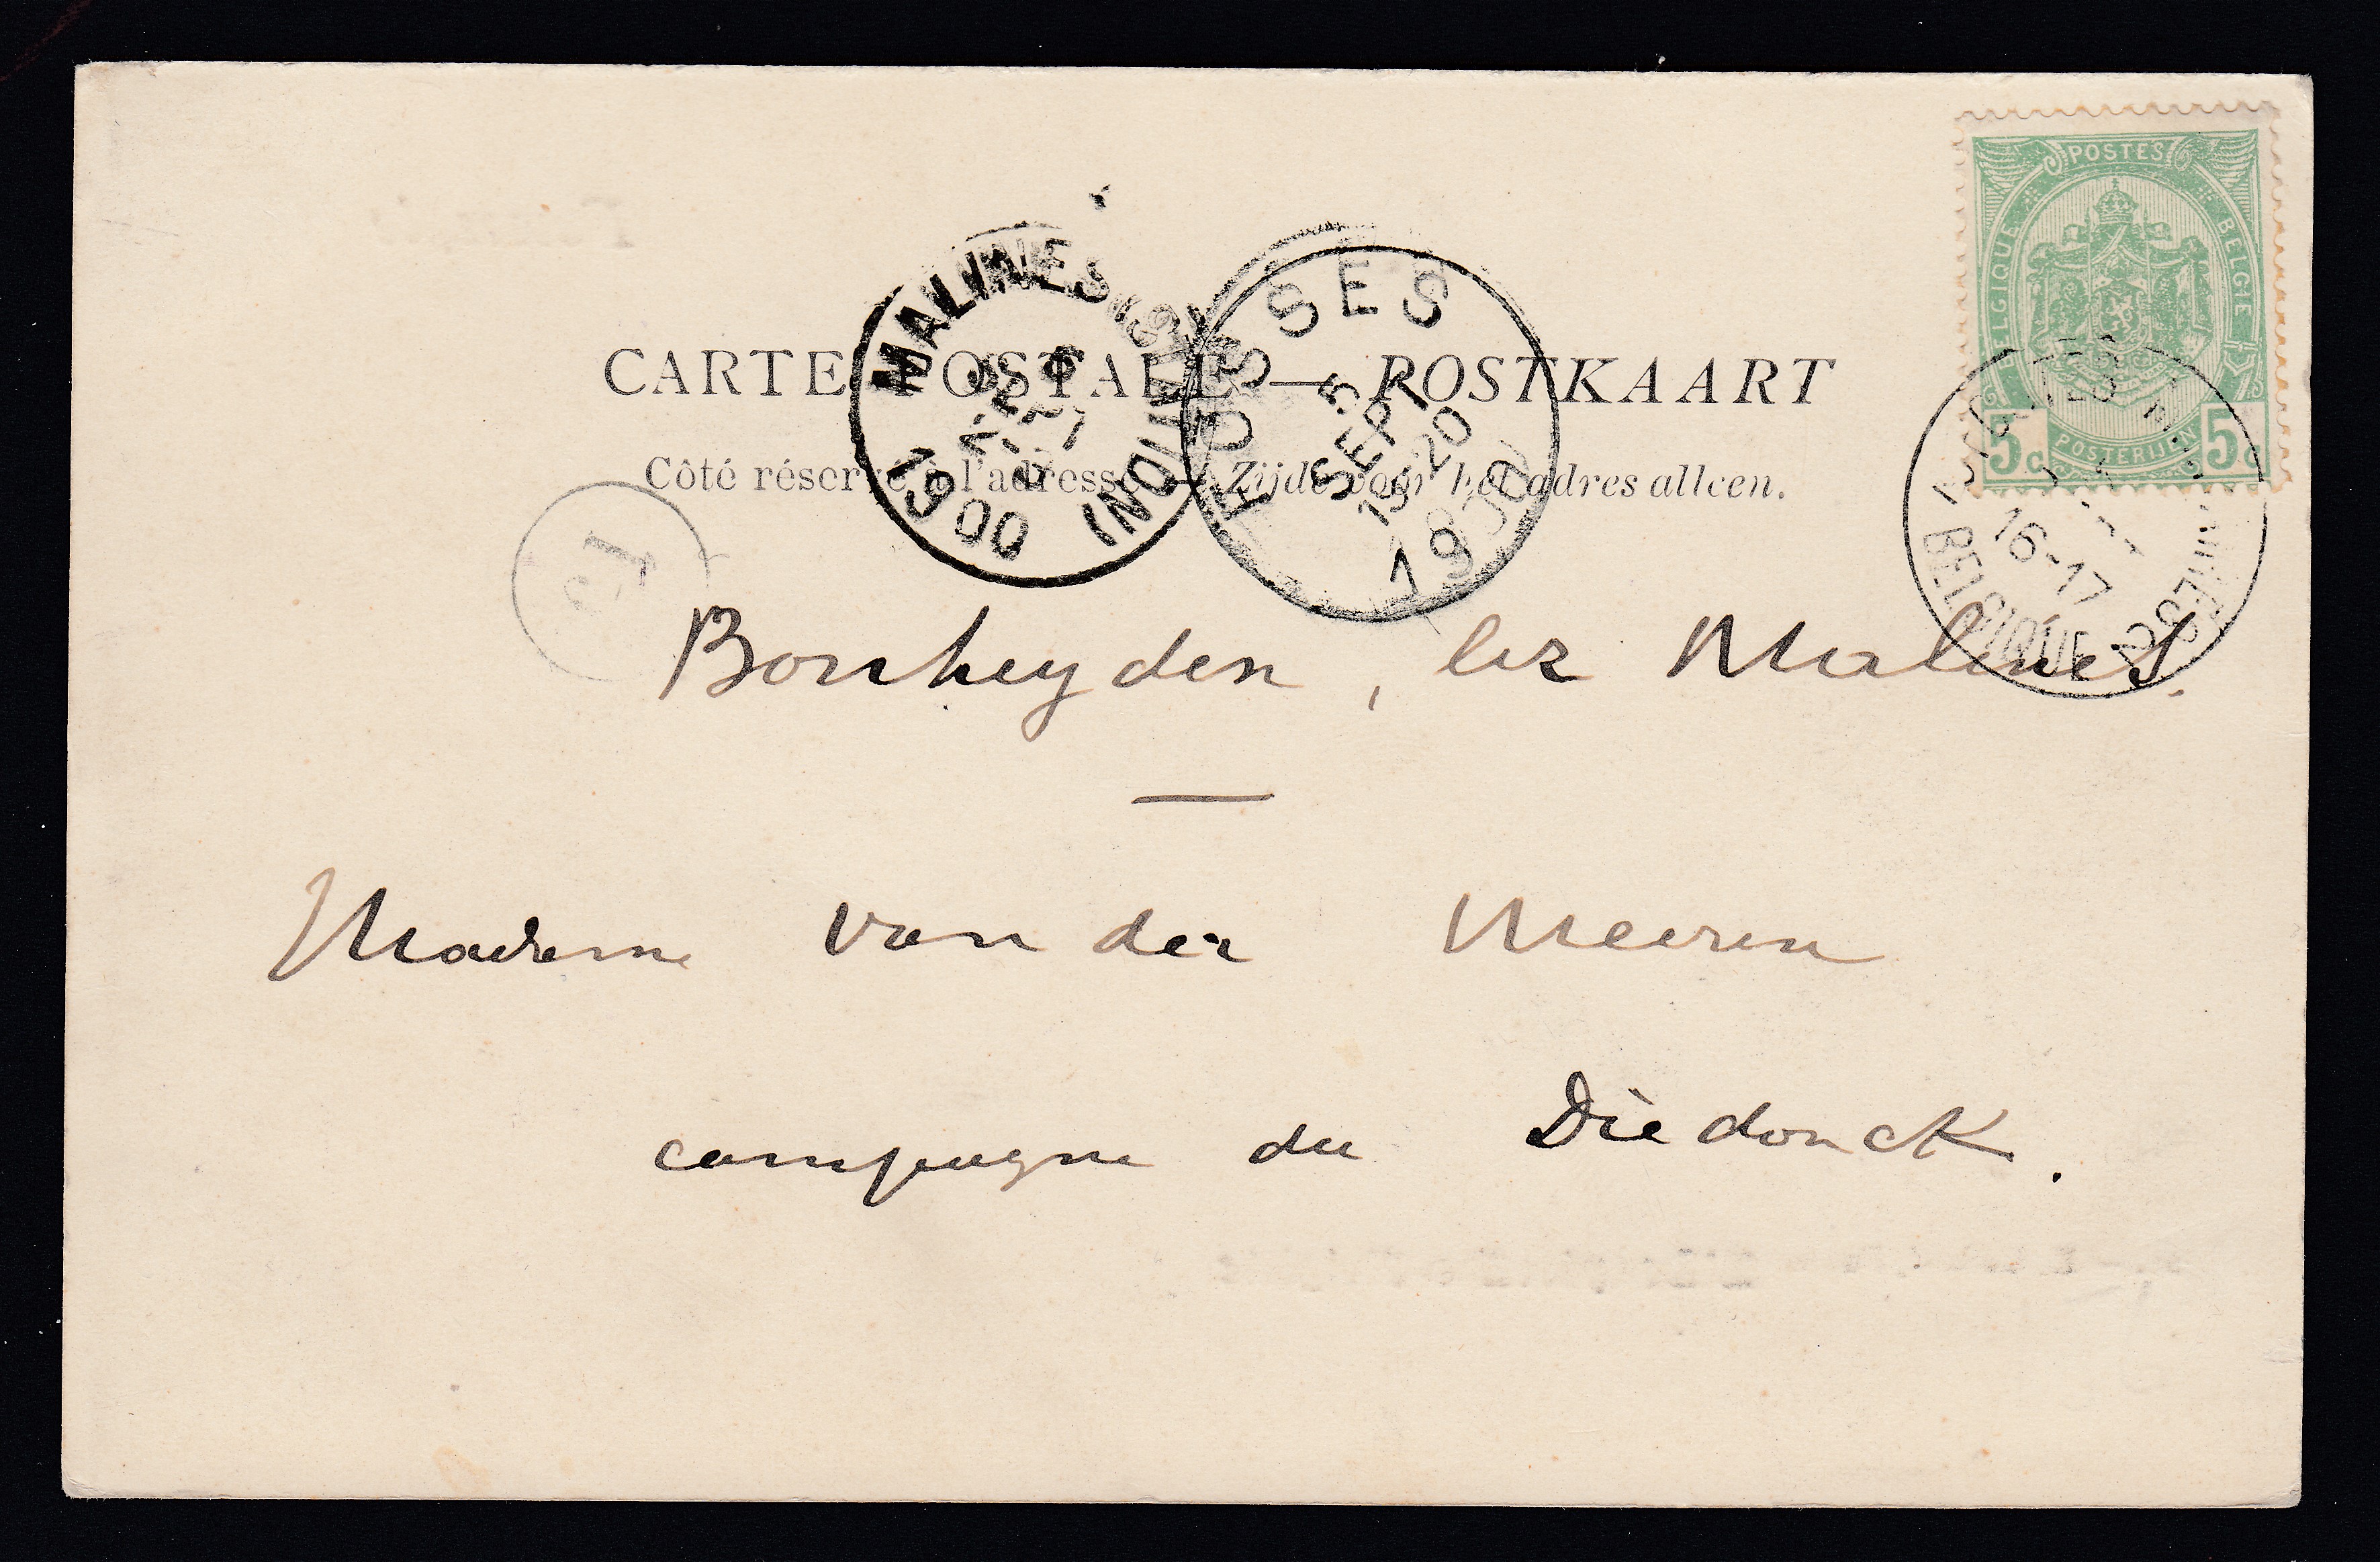 POSTES
BELGIQUE
BELGIE
5c POSTERIJEN 5c
CARTE POSTALE — POSTKAART
Côté réservé à l'adresse. — Zijde voor het adres alleen.
MALINES (STATION)
1900
FOSSES
5
SEPT
19-20
1900
16-17
BELGIQUE
Bonheyden, lez Malines.
Madame Van der Meeren
campagne du Diedonck.